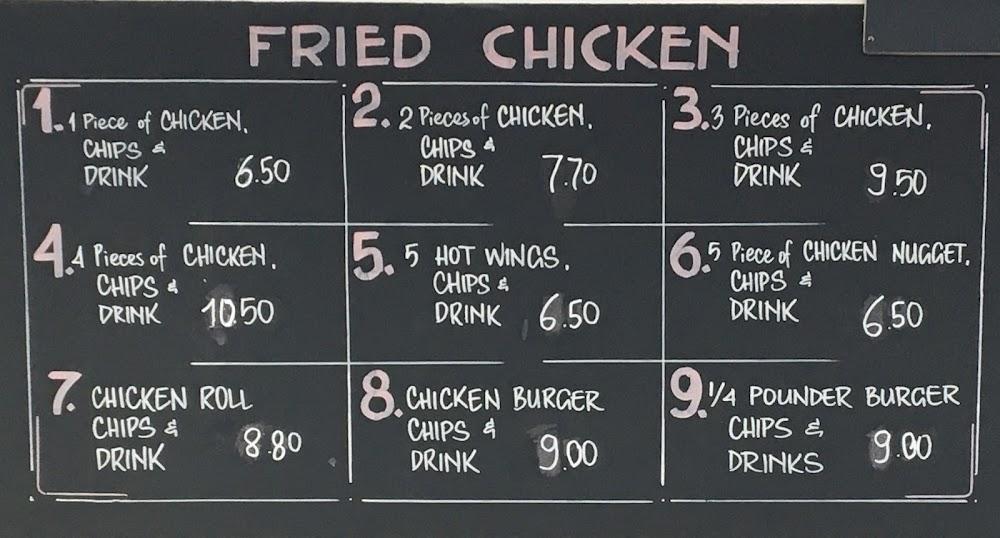 FRIED CHICKEN
1. 1 Piece of CHICKEN,
CHIPS &
DRINK 6.50
2. 2 Pieces of CHICKEN,
CHIPS &
DRINK 7.70
3. 3 Pieces of CHICKEN,
CHIPS &
DRINK 9.50
4. 4 Pieces of CHICKEN,
CHIPS &
DRINK 10.50
5. 5 HOT WINGS,
CHIPS &
DRINK 6.50
6. 5 Piece of CHICKEN NUGGET,
CHIPS &
DRINK 6.50
7. CHICKEN ROLL
CHIPS &
DRINK 8.80
8. CHICKEN BURGER
CHIPS &
DRINK 9.00
9. 1/4 POUNDER BURGER
CHIPS &
DRINKS 9.00